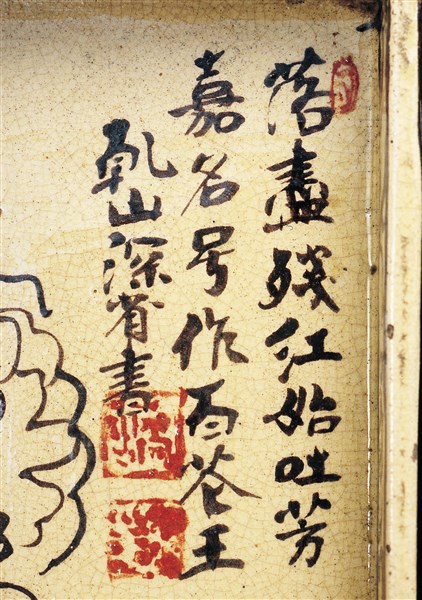 落盡殘紅始吐芳
嘉名号作百花王
乾山深省書